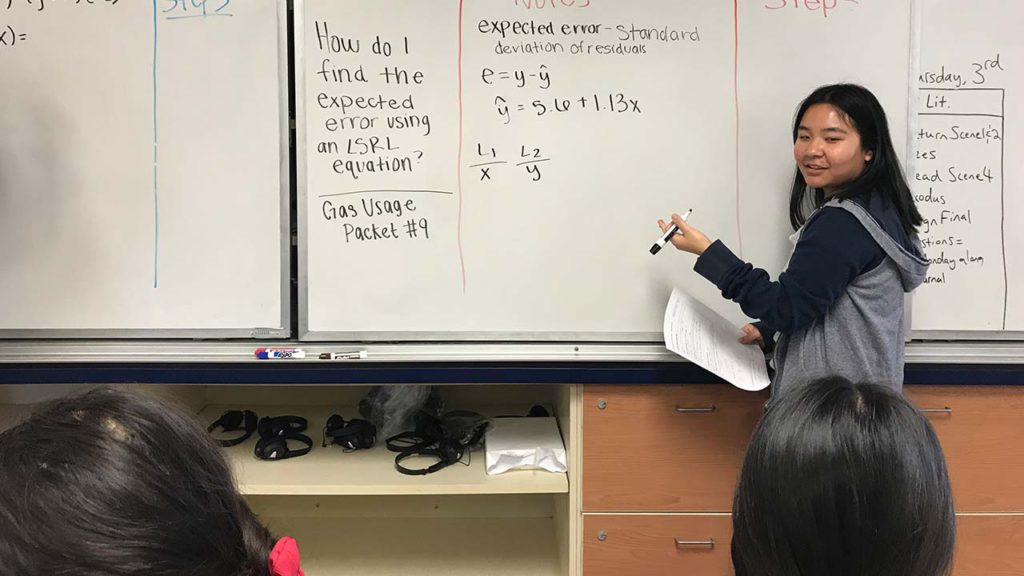 Steps
x)=
How do I
find the
expected
error using
an LSRL
equation?
Gas Usage
Packet #9
Notes
expected error - Standard
deviation of residuals
e = y - ŷ
ŷ = 5.6 + 1.13x
L₁ L₂
x y
Step
rsday, 3rd
Lit.
turn Scene 1 & 2
ead Scene 4
xodus
gn Final
stions =
onday along
urnal
EXPO